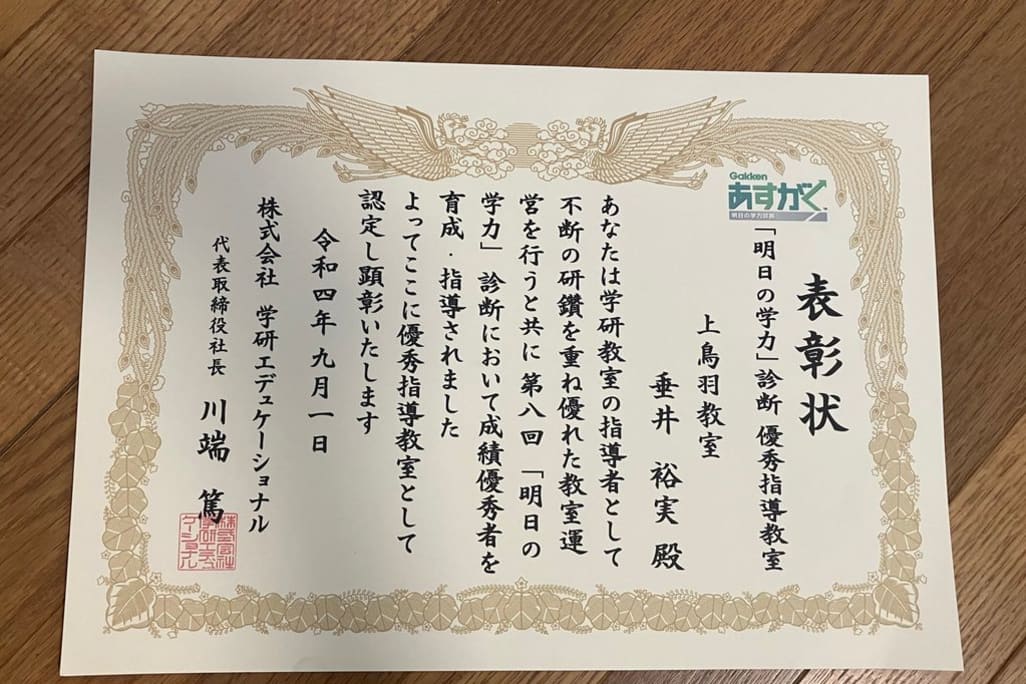 Gakken
あすがく
明日の学力診断
表彰状
「明日の学力」診断 優秀指導教室
上鳥羽教室
垂井 裕実 殿
あなたは学研教室の指導者として
不断の研鑽を重ね優れた教室運
営を行うと共に第八回「明日の
学力」診断において成績優秀者を
育成・指導されました
よってここに優秀指導教室として
認定し顕彰いたします
令和四年九月一日
株式会社 学研エデュケーショナル
代表取締役社長 川端 篤
株式会社
学研エデュ
ケーショナル